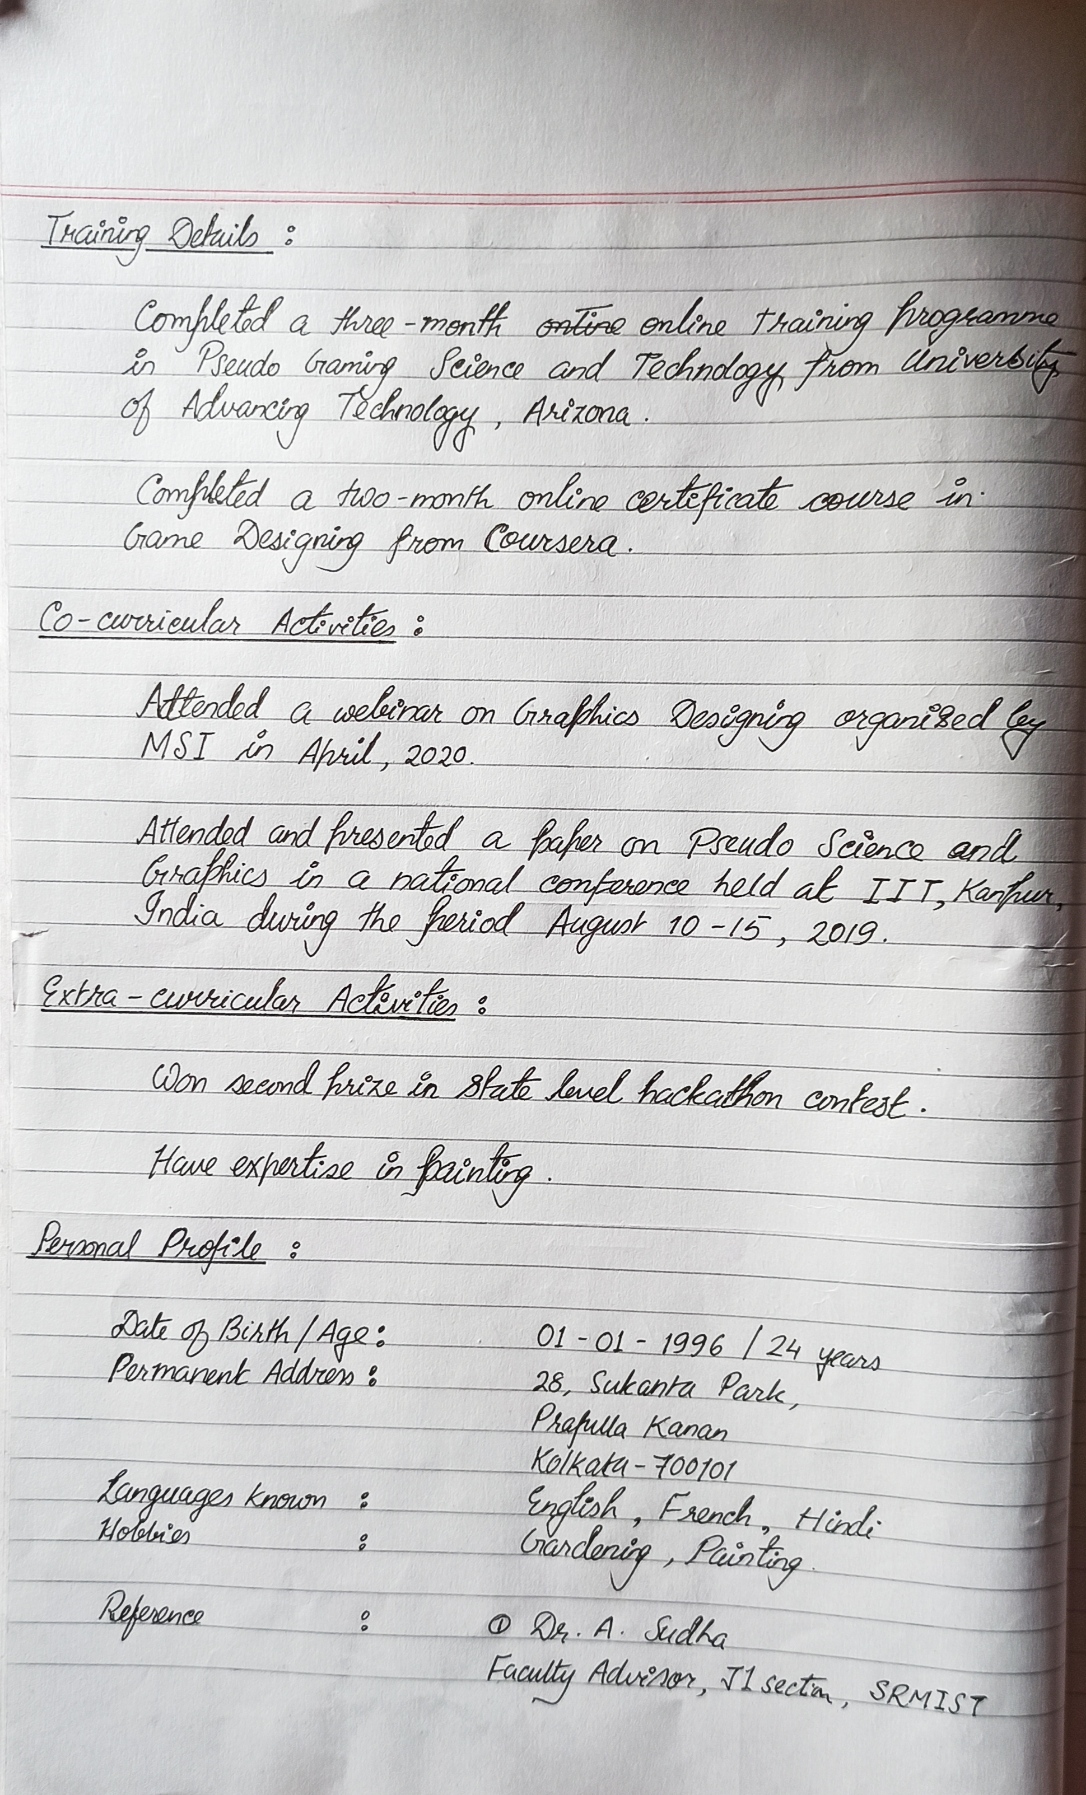 Training Details :
Completed a three-month online online training programme
in Pseudo Gaming Science and Technology from University
of Advancing Technology, Arizona.
Completed a two-month online certificate course in
Game Designing from Coursera.
Co-curricular Activities :
Attended a webinar on Graphics Designing organised by
MSI in April, 2020.
Attended and presented a paper on Pseudo Science and
Graphics in a national conference held at IIT, Kanpur,
India during the period August 10-15, 2019.
Extra-curricular Activities :
Won second prize in state level hackathon contest.
Have expertise in painting.
Personal Profile :
Date of Birth / Age : 01-01-1996 / 24 years
Permanent Address : 28, Sukanta Park,
Prafulla Kanan
Kolkata-700101
Languages known : English, French, Hindi
Hobbies : Gardening, Painting.
Reference : ① Dr. A. Sudha
Faculty Advisor, J1 section, SRMIST